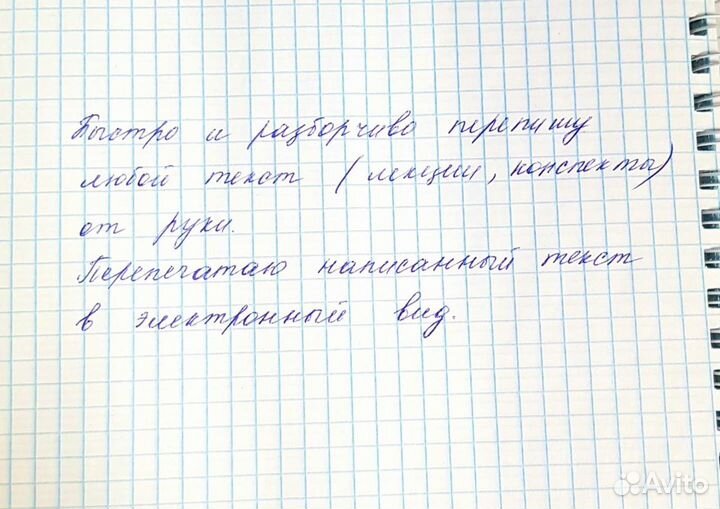 Быстро и разборчиво перепишу
любой текст (лекции, конспекты)
от руки.
Перепечатаю написанный текст
в электронный вид.
Avito